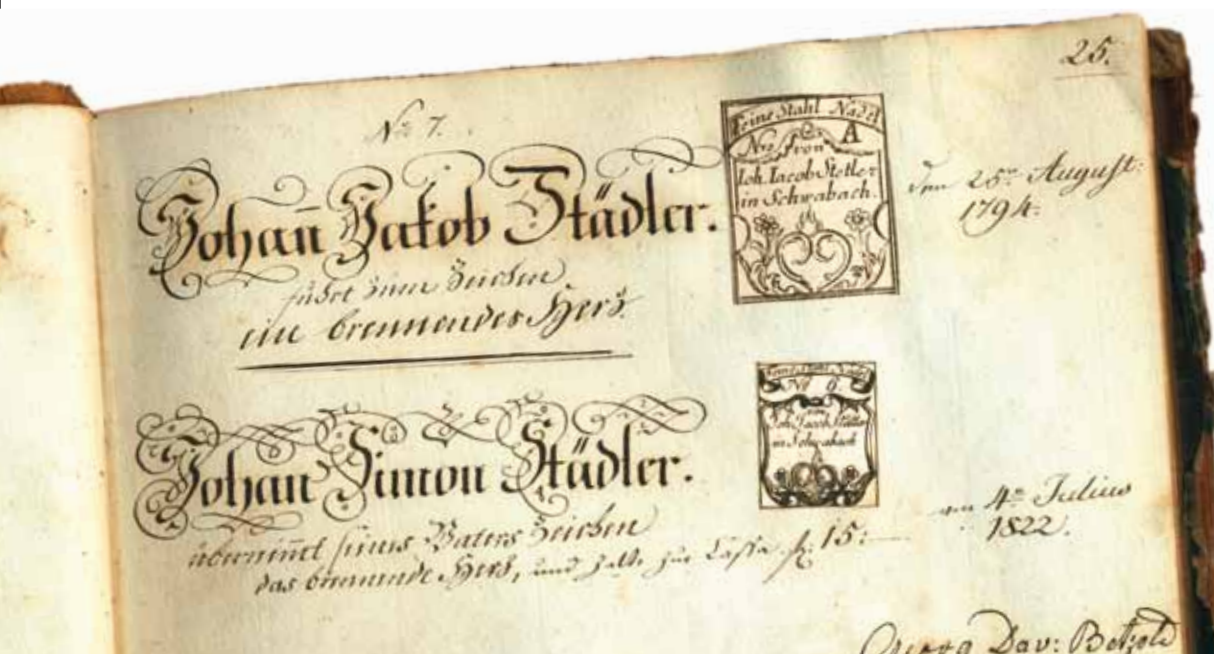 25.
No 7.
Johan̄ Jakob Städler.
führt zum Zeichen
ein brennendes Herz.
Feine Stahl Nadel
Nro von A
Joh. Jacob Stetler
in Schwabach.
den 25ten August:
1794.
Johan Simon Städler.
übernim̄t seines Vaters Zeichen
das brennende Herz, und zalt zur Cassa f. 15:
Feine Stahl Nadel
No 6.
von
Joh. Jacob Städler
in Schwabach
am 4ten Julius
1822.
Georg Dav: